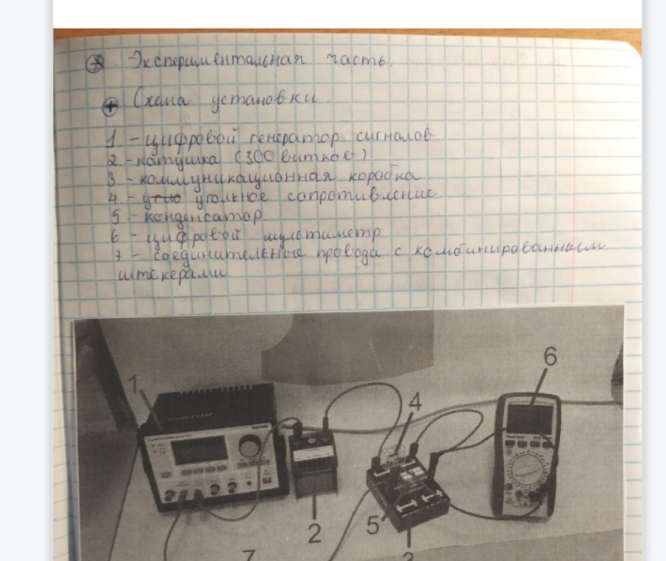 Экспериментальная часть
Схема установки
1 - цифровой генератор сигналов
2 - катушка (300 витков)
3 - коммуникационная коробка
4 - угольное сопротивление
5 - конденсатор
6 - цифровой мультиметр
7 - соединительные провода с комбинированным
штекерами
1
6
4
2
5
7
3